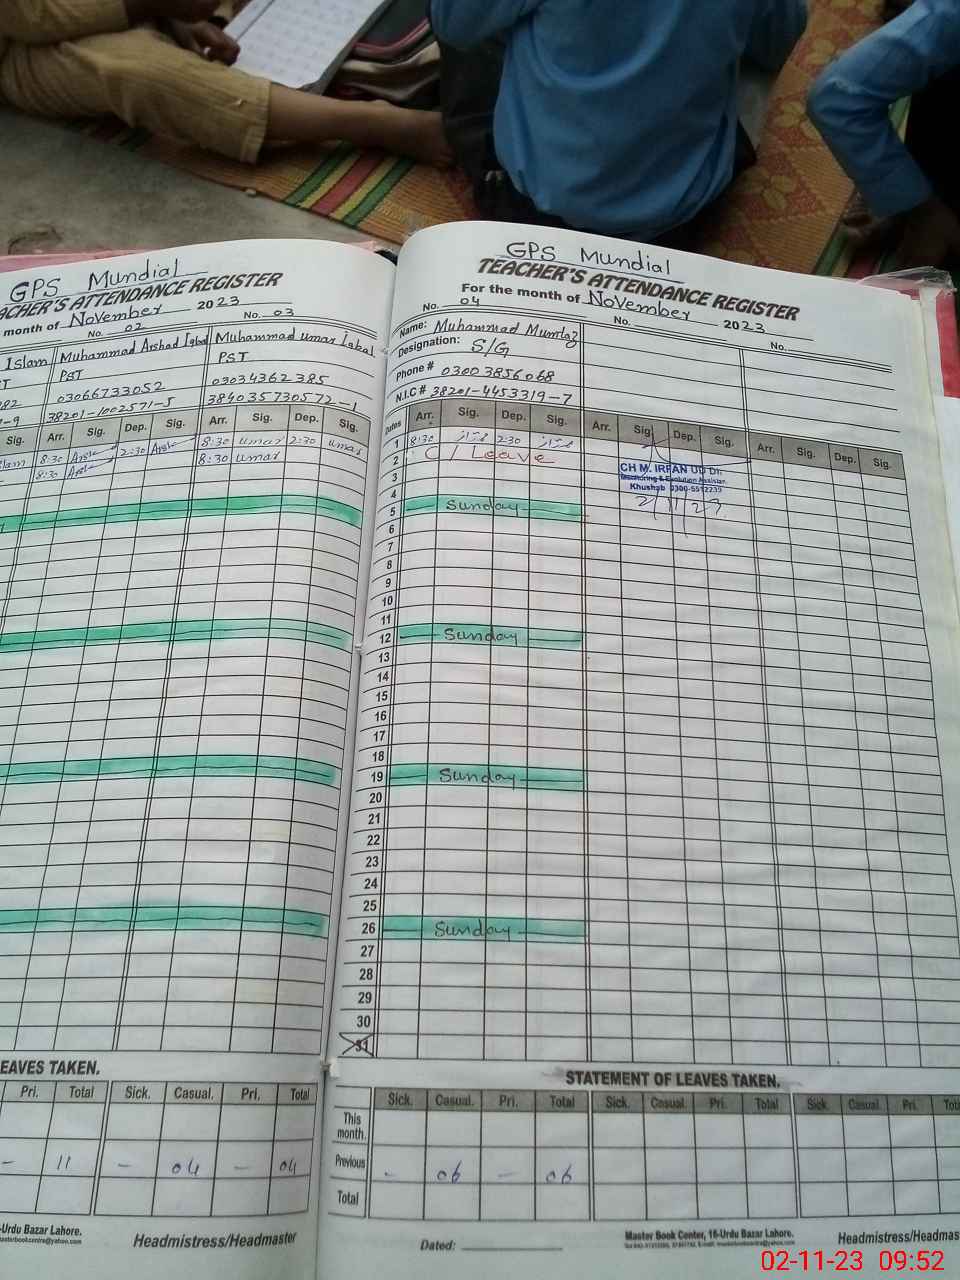 GPS Mundial
ACHER'S ATTENDANCE REGISTER
month of November 2023
No. 02
No. 03
Islam
Muhammad Arshad Iqbal
Muhammad umar Iqbal
PST
PST
03066733052
03034362385
38201-1002571-5
384035730572-1
Sig. Arr. Sig. Dep. Sig. Arr. Sig. Dep. Sig.
slam 8:30 2:30 8:30 umar 2:30 umar
8:30 8:30 umar
EAVES TAKEN.
Pri. Total Sick. Casual. Pri. Total
- 11 - 04 - 04
-Urdu Bazar Lahore.
Headmistress/Headmaster
GPS Mundial
TEACHER'S ATTENDANCE REGISTER
For the month of November 2023
No. 04
No.
No.
Name: Muhammad Mumtaz
Designation: S/G
Phone # 03003856068
N.I.C # 38201-4453319-7
Dates Arr. Sig. Dep. Sig. Arr. Sig. Dep. Sig. Arr. Sig. Dep. Sig.
1 8:30 ممتاز 2:30 ممتاز
2 C/Leave
CH M. IRFAN UD DIN
Monitoring & Evolution Assistan
Khushab 0300-5512239
2/11/23
3
4
5 Sunday
6
7
8
9
10
11
12 Sunday
13
14
15
16
17
18
19 Sunday
20
21
22
23
24
25
26 Sunday
27
28
29
30
31
STATEMENT OF LEAVES TAKEN.
Sick. Casual. Pri. Total Sick. Casual. Pri. Total Sick. Casual Pri. Tot
This month.
Previous - 06 - 06
Total
Dated:
Master Book Center, 16-Urdu Bazar Lahore.
Headmistress/Head
02-11-23 09:52